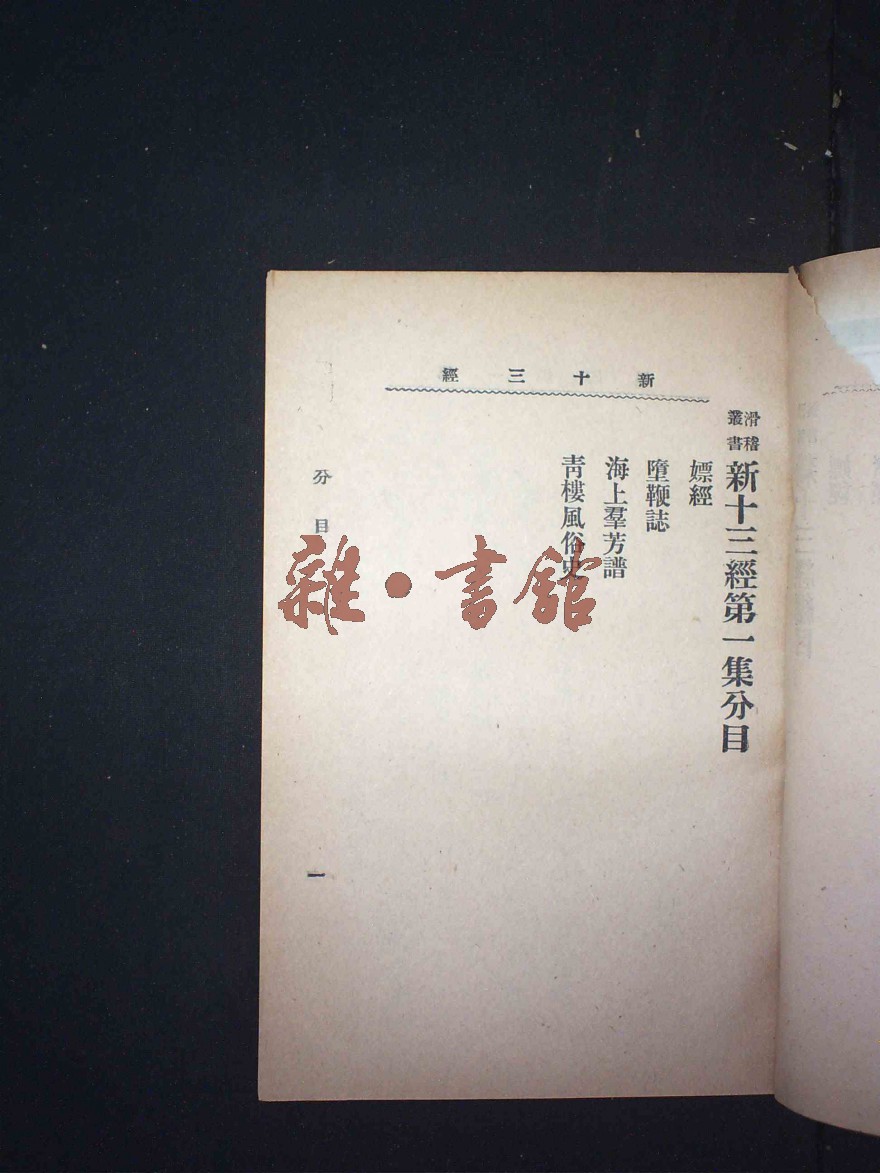 新十三經
滑稽叢書
新十三經第一集分目
嫖經
墮鞭誌
海上羣芳譜
青樓風俗史
分目
一
雜·書館